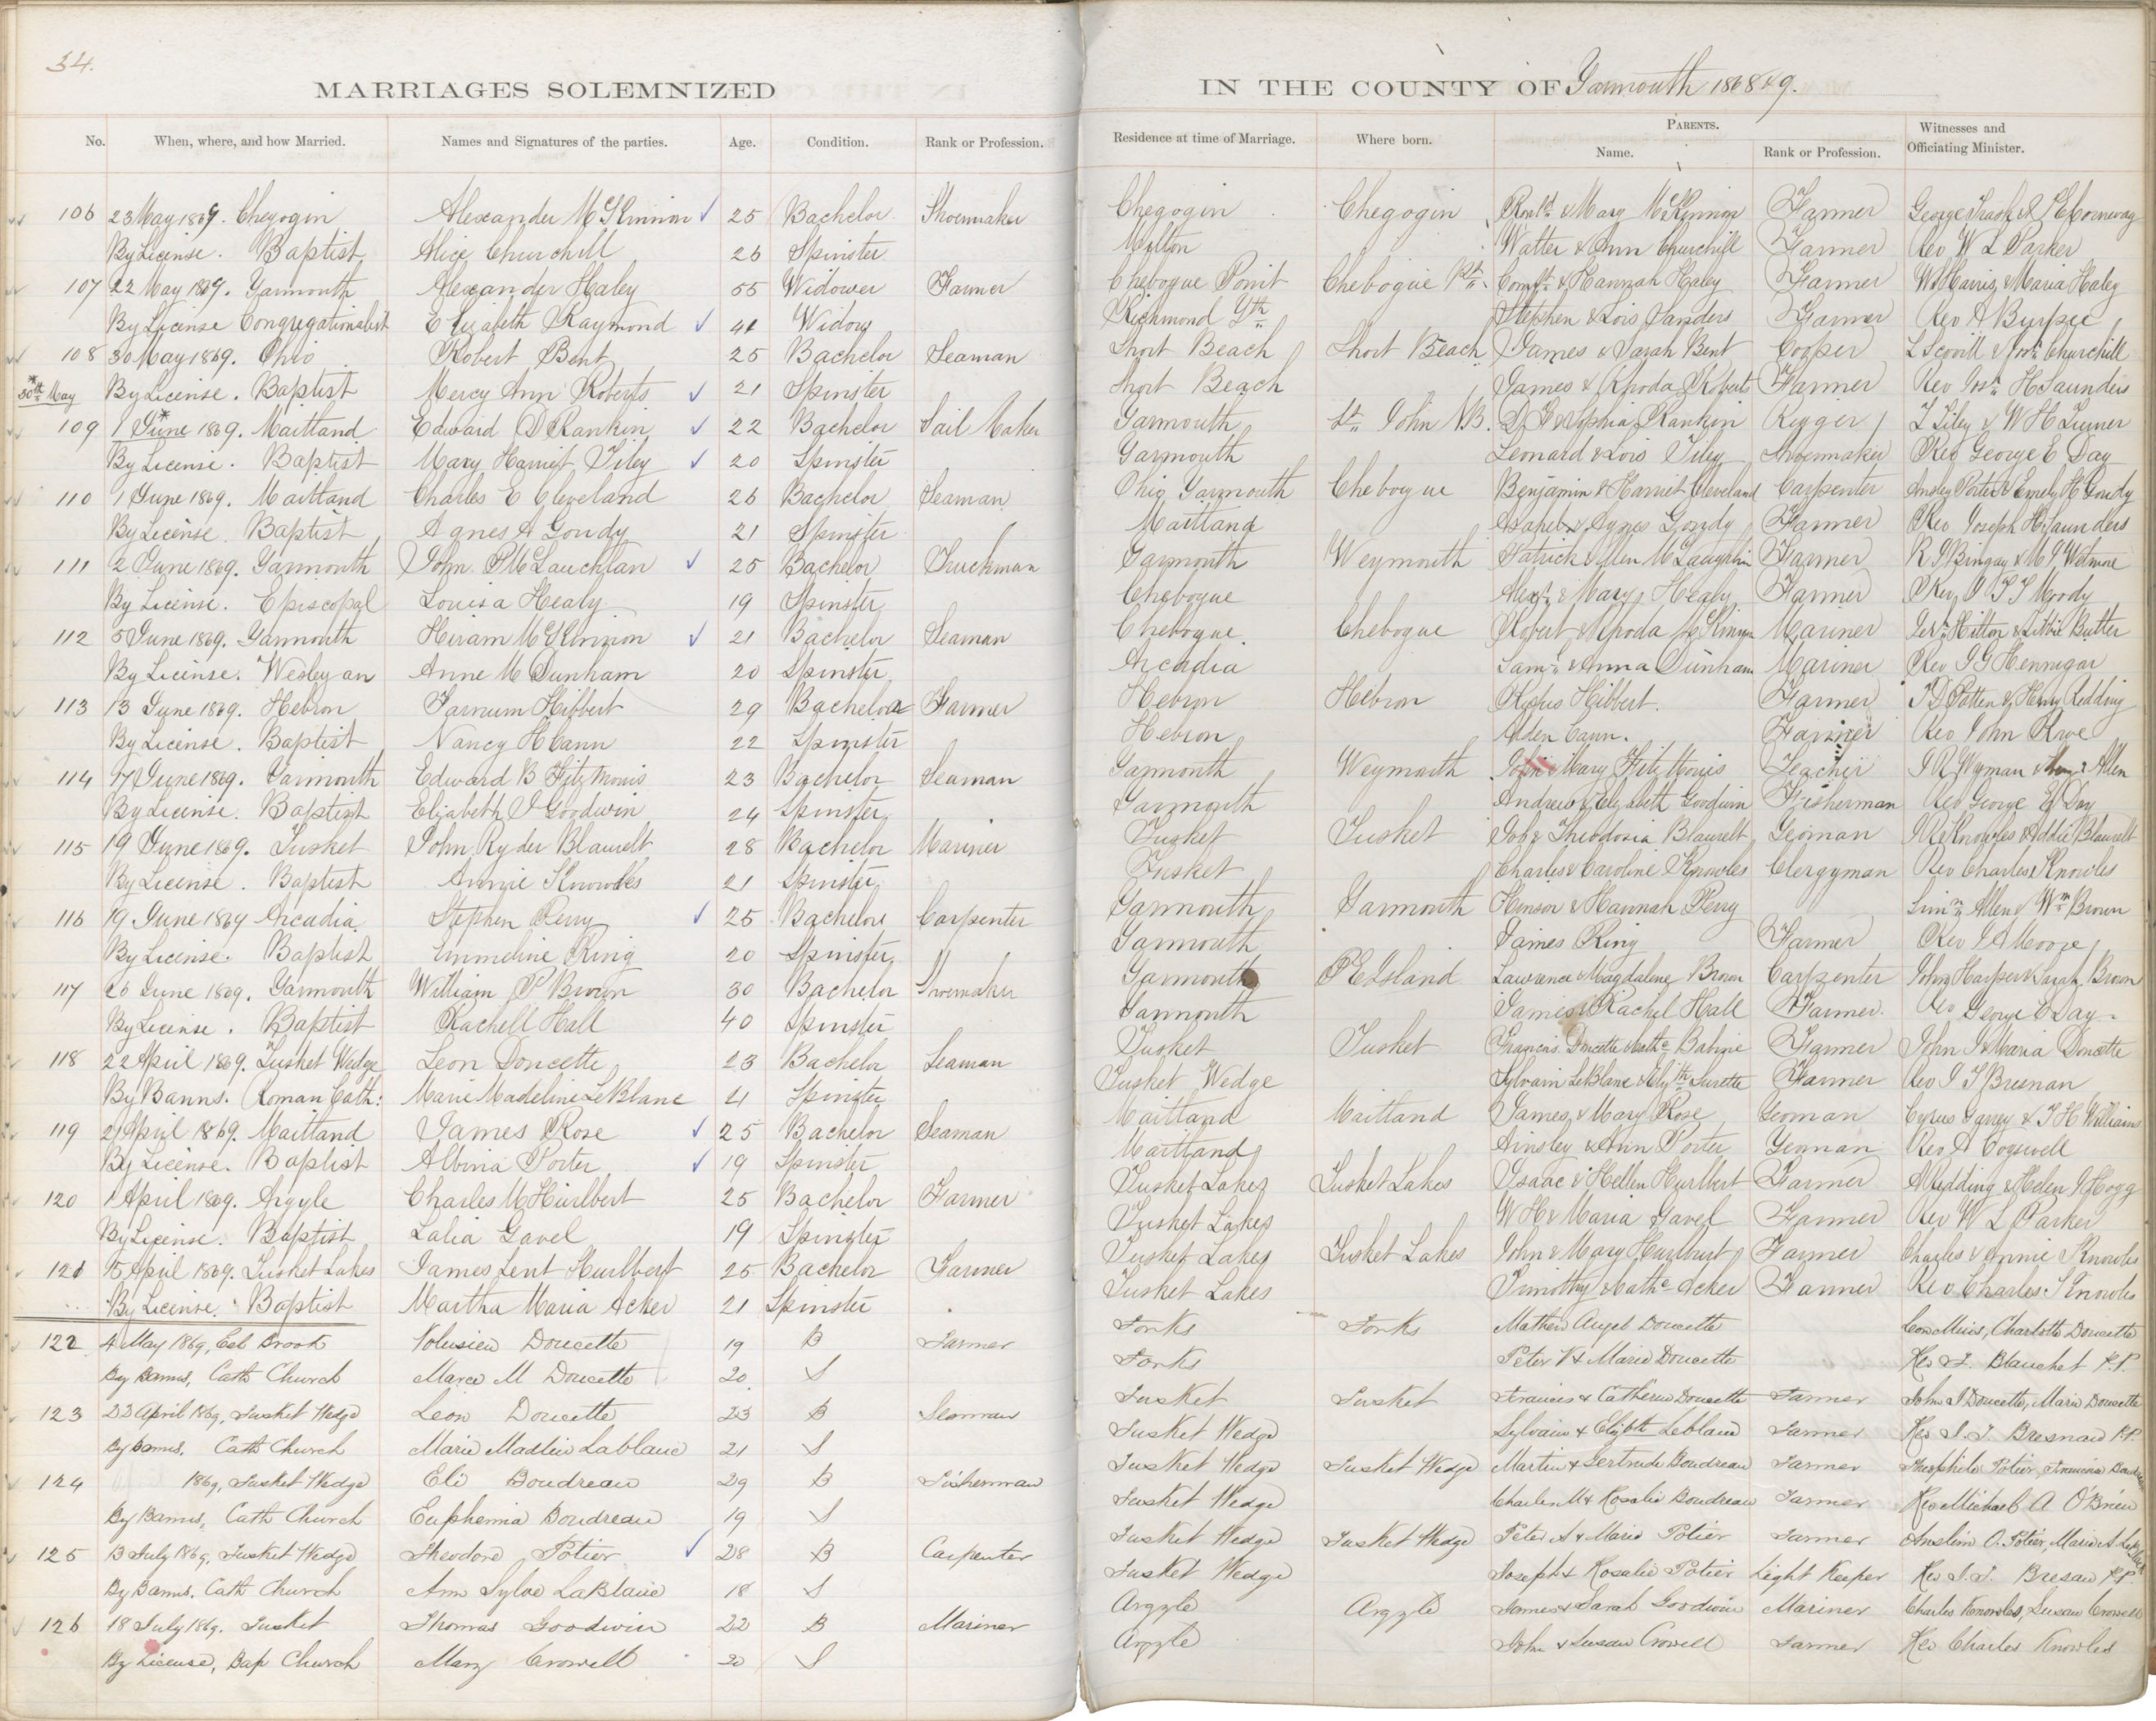 34.
MARRIAGES SOLEMNIZED IN THE COUNTY OF Yarmouth 1868 & 9.
No. When, where, and how Married. Names and Signatures of the parties. Age. Condition. Rank or Profession. Residence at time of Marriage. Where born. PARENTS. Name. Rank or Profession. Witnesses and Officiating Minister.
106 23 May 1869. Chegogin Alexander McKinnon 25 Bachelor Shoemaker Chegogin Chegogin Mary McKinnon Farmer George Trask &
By License. Baptist Alice Churchill 26 Spinster Milton Walter & Ann Churchill Farmer Rev W L Parker
107 22 May 1869. Yarmouth Alexander Haley 55 Widower Farmer Chebogue Point Chebogue Pt. Comft & Hannah Haley Farmer W Harris & Maria Haley
By License Congregationalist Elizabeth Raymond 41 Widow Richmond Yth Stephen & Lois Sanders Farmer Rev A Burpee
108 30 May 1869. Ohio Robert Bent 25 Bachelor Seaman Short Beach Short Beach James & Sarah Bent Cooper L Scovill & Churchill
30th May By License. Baptist Mercy Ann Roberts 21 Spinster Short Beach James & Rhoda Roberts Farmer Rev Josh H Saunders
109 1 June* 1869. Maitland Edward D Rankin 22 Bachelor Sail Maker Yarmouth St John NB. & Sophia Rankin Rigger
By License. Baptist Mary Harriet Tiley 20 Spinster Yarmouth Leonard & Lois Tiley Shoemaker Rev George E Day
110 1 June 1869. Maitland Charles E Cleveland 26 Bachelor Seaman Ohio Yarmouth Chebogue Benjamin & Harriet Cleveland Carpenter Ansley Porter & Emely H Goudy
By License. Baptist Agnes A Goudy 21 Spinster Maitland Asahel & Agnes Goudy Farmer Rev Joseph H Saunders
111 2 June 1869. Yarmouth John P McLauchlan 25 Bachelor Truckman Yarmouth Weymouth Patrick & Ellen McLaughlin Farmer R J Bingay & M J Wetmore
By License. Episcopal Louisa Healy 19 Spinster Chebogue Alexr & Mary Healy Farmer Rev J T T Moody
112 5 June 1869. Yarmouth Hiram McKinnon 21 Bachelor Seaman Chebogue Chebogue Robert & Rhoda McKinnon Mariner Hilton & Libbie Butler
By License. Wesleyan Anne M Dunham 20 Spinster Arcadia Saml & Anna Dunham Mariner Rev J G Hennigar
113 13 June 1869. Hebron Farnum Hibbert 29 Bachelor Farmer Hebron Hebron Rufus Hibbert. Farmer J D Patten & Henry Redding
By License. Baptist Nancy H Cann 22 Spinster Hebron Alden Cann. Farmer Rev John Rowe
114 17 June 1869. Yarmouth Edward B Fitz Morris 23 Bachelor Seaman Yarmouth Weymouth John & Mary Fitz Morris Teacher J R Wyman & Allen
By License. Baptist Elizabeth J Goodwin 24 Spinster Yarmouth Andrew & Elizabeth Goodwin Fisherman Rev George E Day
115 19 June 1869. Tusket John Ryder Blauvelt 28 Bachelor Mariner Tusket Tusket Job & Theodosia Blauvelt Yeoman Knowles & Addie Blauvelt
By License. Baptist Annie Knowles 21 Spinster Tusket Charles & Caroline Knowles Clergyman Rev Charles Knowles
116 19 June 1869 Arcadia Stephen Perry 25 Bachelor Carpenter Yarmouth Yarmouth Hinson & Hannah Perry Allen & Wm Brown
By License. Baptist Emmeline Ring 20 Spinster Yarmouth James Ring Farmer Rev J A Moore
117 26 June 1869. Yarmouth William P Brown 30 Bachelor Shoemaker Yarmouth P E Island Lawrance & Magdalene Brown Carpenter John Harper & Sarah Brown
By License. Baptist Rachell Hall 40 Spinster Yarmouth James & Rachel Hall Farmer. Rev George E Day.
118 22 April 1869. Tusket Wedge Leon Doucette 23 Bachelor Seaman Tusket Tusket Francois Doucette Cathe Babine Farmer John J & Maria Doucette
By Banns. Roman Cath: Marie Madeline LeBlanc 21 Spinster Tusket Wedge Sylvain LeBlanc & Elizth Surette Farmer Rev J T Bresnan
119 2 April 1869. Maitland James Rose 25 Bachelor Seaman Maitland Maitland James & Mary Rose Yeoman Cyrus Garvey & J H Williams
By License. Baptist Albina Porter 19 Spinster Maitland Ainsley & Ann Porter Yeoman Rev A Cogswell
120 1 April 1869. Argyle Charles M Hurlbert 25 Bachelor Farmer Tusket Lakes Tusket Lakes Isaac & Hellen Hurlbert Farmer A Redding & Helen J Hogg
By License. Baptist Lalia Gavel 19 Spinster Tusket Lakes W H & Maria Gavel Farmer Rev W L Parker
121 15 April 1869. Tusket Lakes James Lent Hurlbert 25 Bachelor Farmer Tusket Lakes Tusket Lakes John & Mary Hurlburt Farmer Charles & Annie Knowles
By License. Baptist Martha Maria Acker 21 Spinster Tusket Lakes Timothy & Cathe Acker Farmer Rev Charles Knowles
122 4 May 1869, Eel Brook Volusien Doucette 19 B Farmer Forks Forks Mathew Angel Doucette Leon Meius, Charlotte Doucette
By Banns, Cath Church Marie M Doucette 20 S Forks Peter V & Marie Doucette Rev F. Blanchet P.P.
123 22 April 1869, Tusket Wedge Leon Doucette 23 B Seaman Tusket Tusket Francis & Catherine Doucette Farmer John J Doucette, Marie Doucette
By banns, Cath Church Marie Madlein Lablanc 21 S Tusket Wedge Sylvain & Elizbth Leblanc Farmer Rev J. T. Bresnan P.P.
124 1869, Tusket Wedge Eli Boudreau 29 B Fisherman Tusket Wedge Tusket Wedge Martin & Gertrude Boudreau Farmer Theophile Potier, Francis Boudreau
By Banns, Cath Church Euphemia Boudreau 19 S Tusket Wedge Charles M & Rosalie Boudreau Farmer Rev Michael A O'Brien
125 13 July 1869, Tusket Wedge Theodore Potier 28 B Carpenter Tusket Wedge Tusket Wedge Peter A & Marie Potier Farmer Anslim O. Potier, Marie A
By Banns, Cath Church Ann Sylve LaBlanc 18 S Tusket Wedge Joseph & Rosalie Potier Light Keeper Rev J. T. Bresan P.P.
126 18 July 1869. Tusket Thomas Goodwin 22 B Mariner Argyle Argyle James & Sarah Goodwin Mariner Charles Knowles, Susan Crowell
By License, Bap Church Mary Crowell 20 S Argyle John & Susan Crowell Farmer Rev Charles Knowles